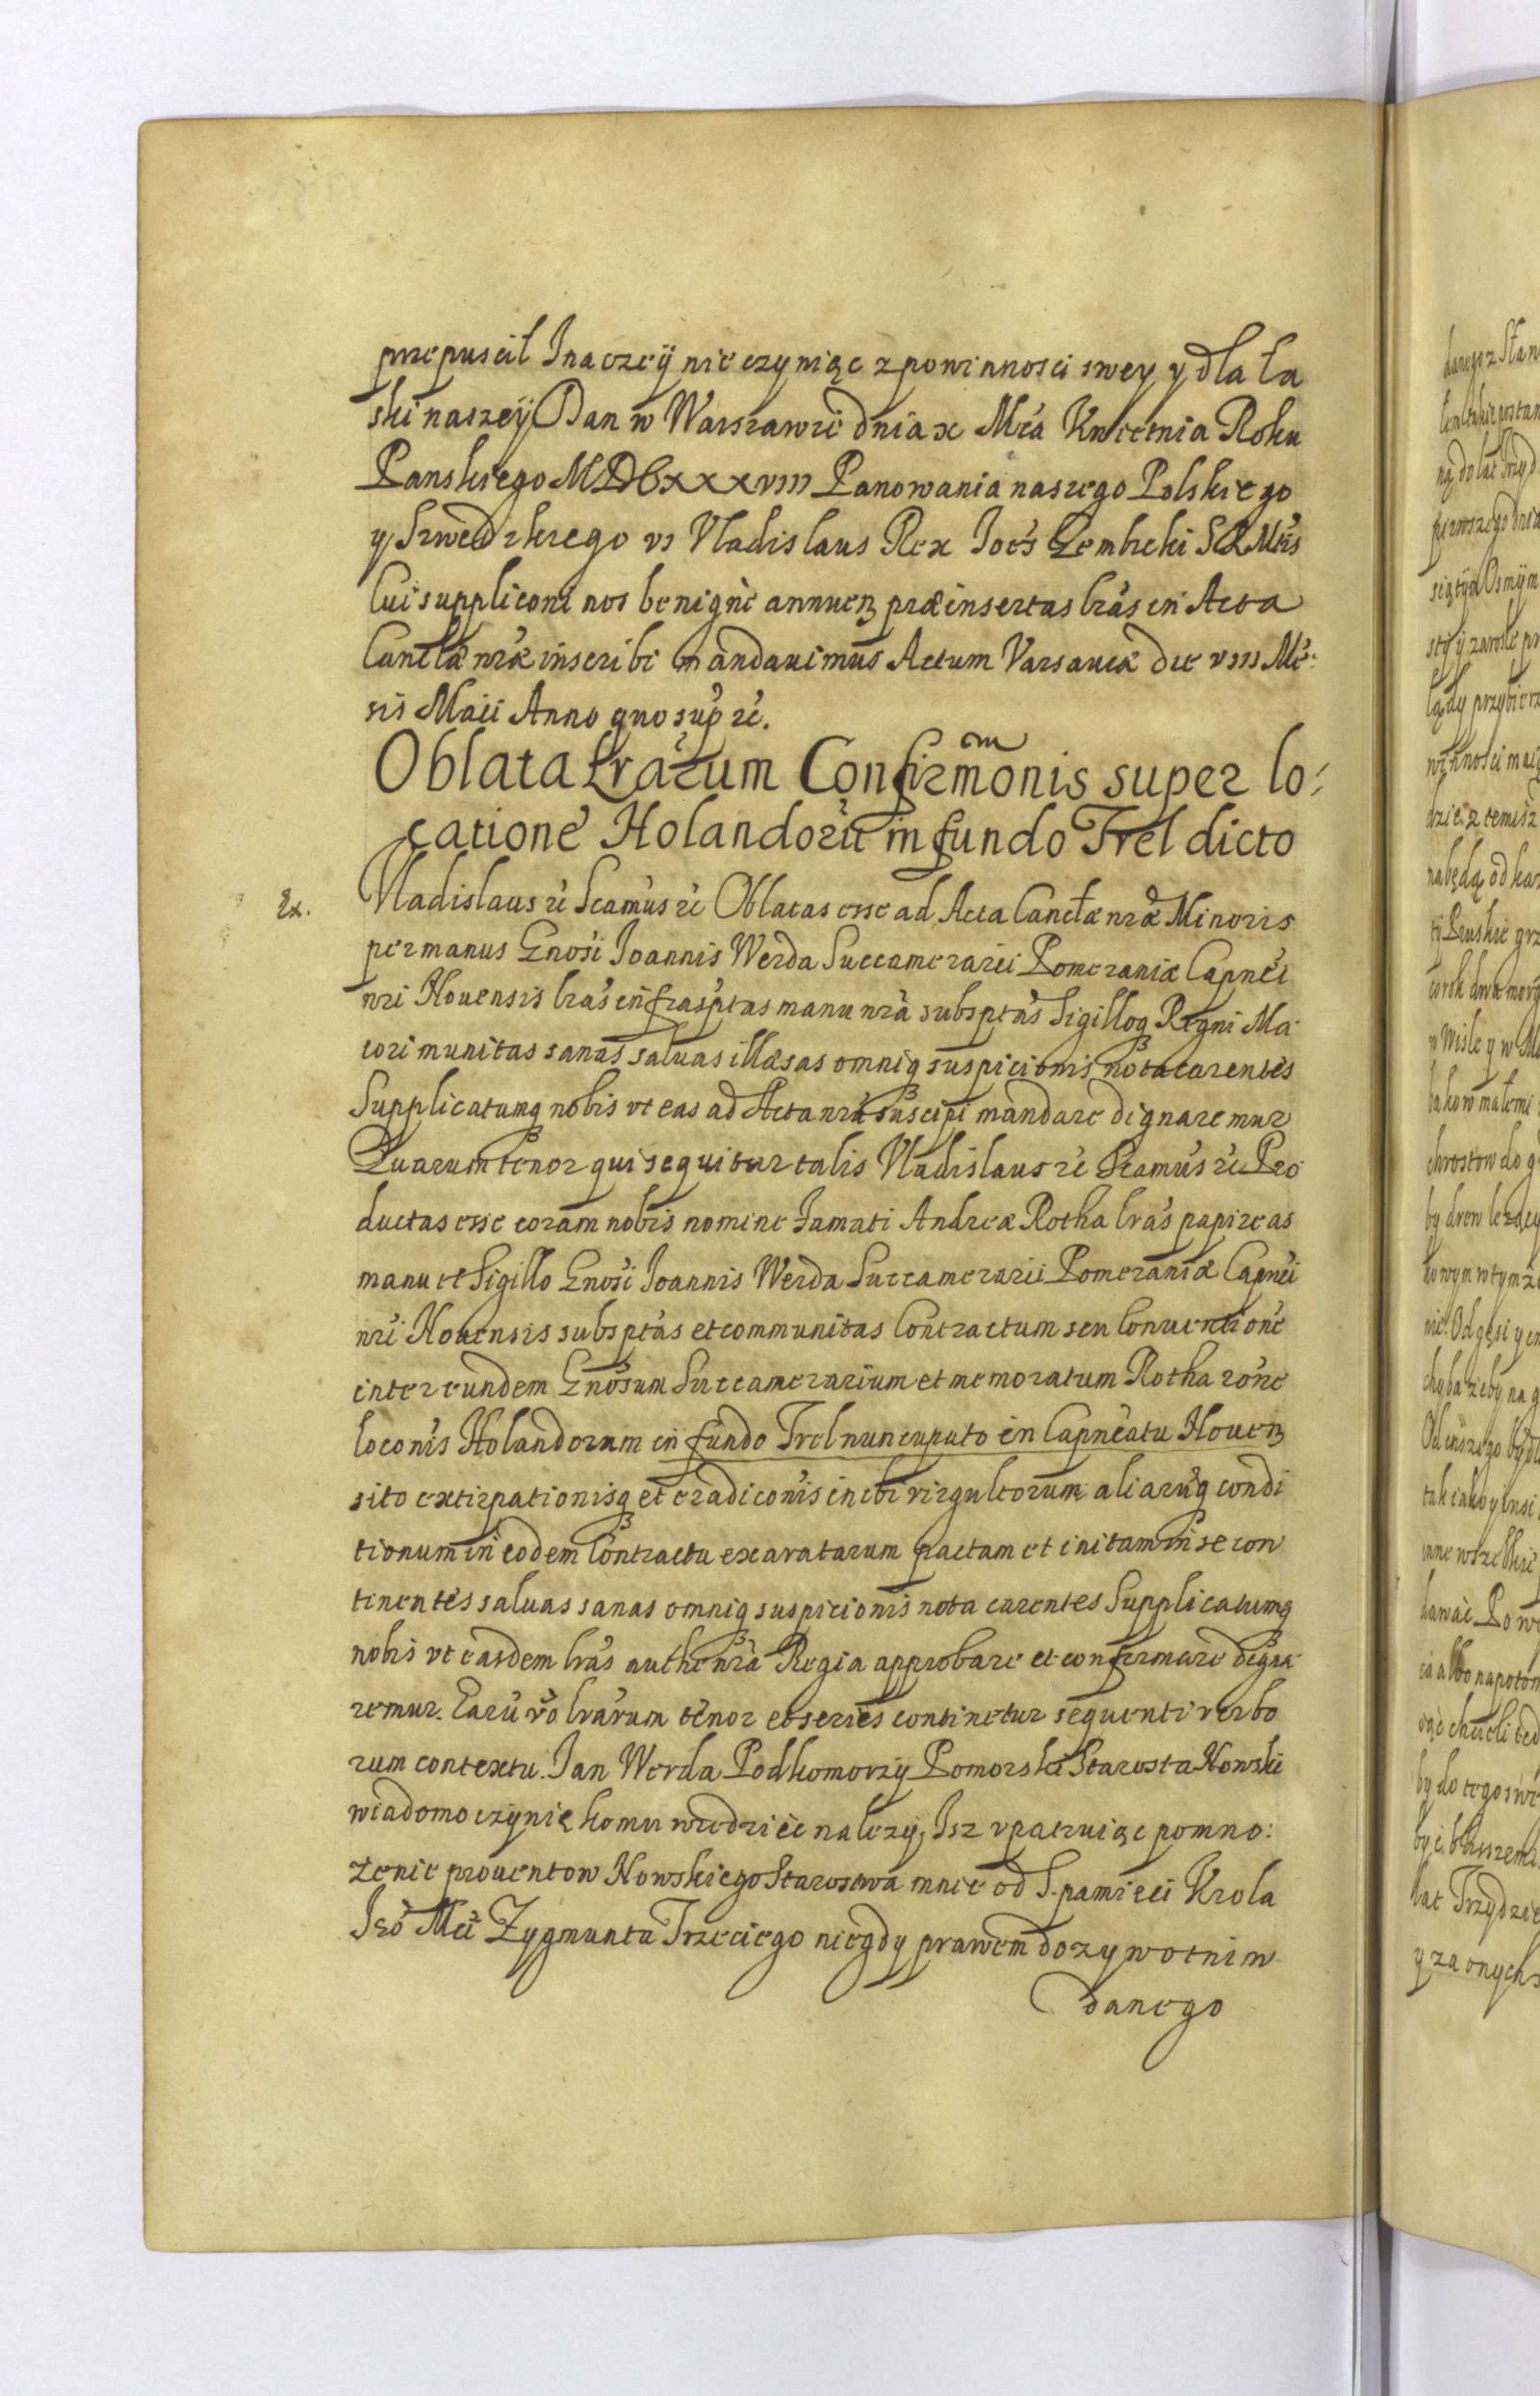 przepuscił Inaczeÿ nie czyniąc z powinnosci swey y dla ła
ski naszeÿ Dan w Warszawie dnia x Mca Kwietnia Roku
Panskiego MDCxxxviii Panowania naszego Polskiego
y Szwedzkiego vi Vladislaus Rex Joes Gembicki SRMtis
Cui suppliconi nos benigne annuen præinsertas lras in Acta
Canclæ nræ inscribi mandauimus Actum Varsauiæ die viii Mē:
sis Maii Anno quo sup zc.
Oblata Lrarum Confirmonis super lo:
catione Holandorū in fundo Trel dicto
Ex. Vladislaus zc Scamus zc Oblatas esse ad Acta Canclæ nræ Minoris
per manus Gnosi Joannis Werda Succamerarii Pomeraniæ Capnei
nri Nouensis lras infrasptas manu nra subsptas Sigilloq Regni Ma
iori munitas sanas saluas illæsas omniq suspicionis nota carentes
Supplicatumq nobis vt eas ad Acta nra suscipi mandare dignaremur
Quarum tenor qui sequitur talis Vladislaus zc Scamus zc Pro
ductas esse coram nobis nomine Famati Andreæ Rotha lras papireas
manu et Sigillo Gnosi Joannis Werda Succamerarii Pomeraniæ Capnei
nri Nouensis subsptas et communitas Contractum seu Conuentione
inter eundem Gnosum Succamerarium et memoratum Rotha rone
loconis Holandorum in fundo Trel nuncupato in Capneatu Nouen
sito extirpationisq et eradiconis inibi virgultorum aliaruq condi
tionum in eodem Contractu exaratarum pactam et initam in se con
tinentes saluas sanas omniq suspicionis nota carentes Supplicatumq
nobis vt easdem lras authe nra Regia approbare et confirmare digna
remur. Earū vo lrarum tenor et series continetur sequenti verbo
rum contextu. Jan Werda Podkomorzÿ Pomorski Starosta Nowski
wiadomo czÿnię komu wiedzieć nalezÿ, Isz vpatruiąc pomno:
zenie prouentow Nowskiego Starostwa mnie od S. pamieci Krola
Jeo Mci Zygmunta Trzeciego niegdy prawem dozywotnim
danego